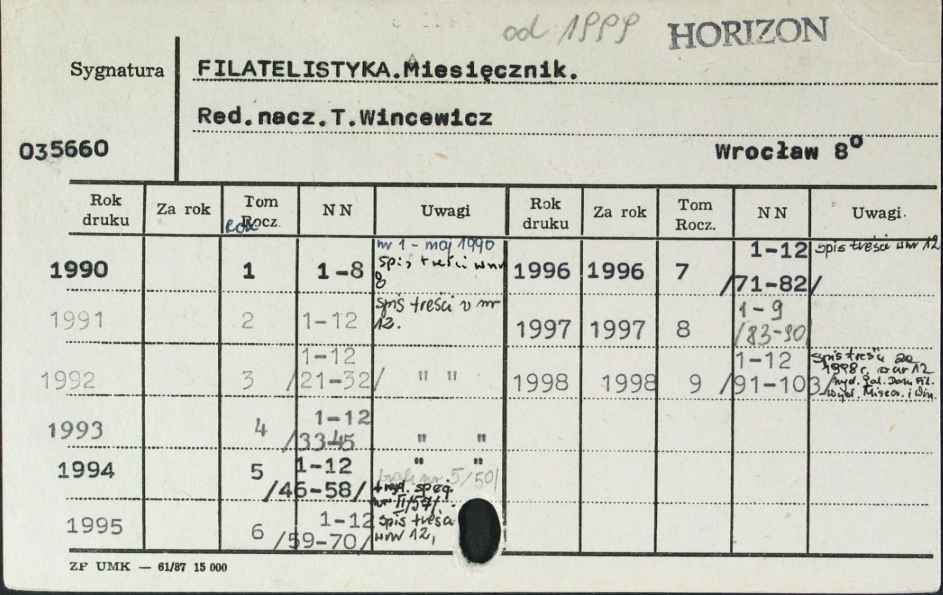 od 1999 HORIZON
Sygnatura FILATELISTYKA.Miesięcznik.
Red.nacz.T.Wincewicz
035660 Wrocław 8°
Rok druku Za rok Tom Rocz. NN Uwagi Rok druku Za rok Tom Rocz. NN Uwagi.
rok
nr 1 - maj 1990
1990 1 1-8 spis treści w nr 8
1996 1996 7 1-12 /71-82/ spis treści w nr 12
1991 2 1-12 spis treści w nr 12.
1997 1997 8 1-9 /83-90/
1992 3 1-12 /21-32/ " "
1998 1998 9 1-12 /91-103/ spis treści za 1998 r. w nr 12
1993 4 1-12 /33-45 " "
1994 5 1-12 /46-58/ " "
nr 5/50/
+ wyd. spec.
nr II/57/.
1995 6 1-12 /59-70/ spis treści w nr 12,
ZP UMK — 61/87 15 000